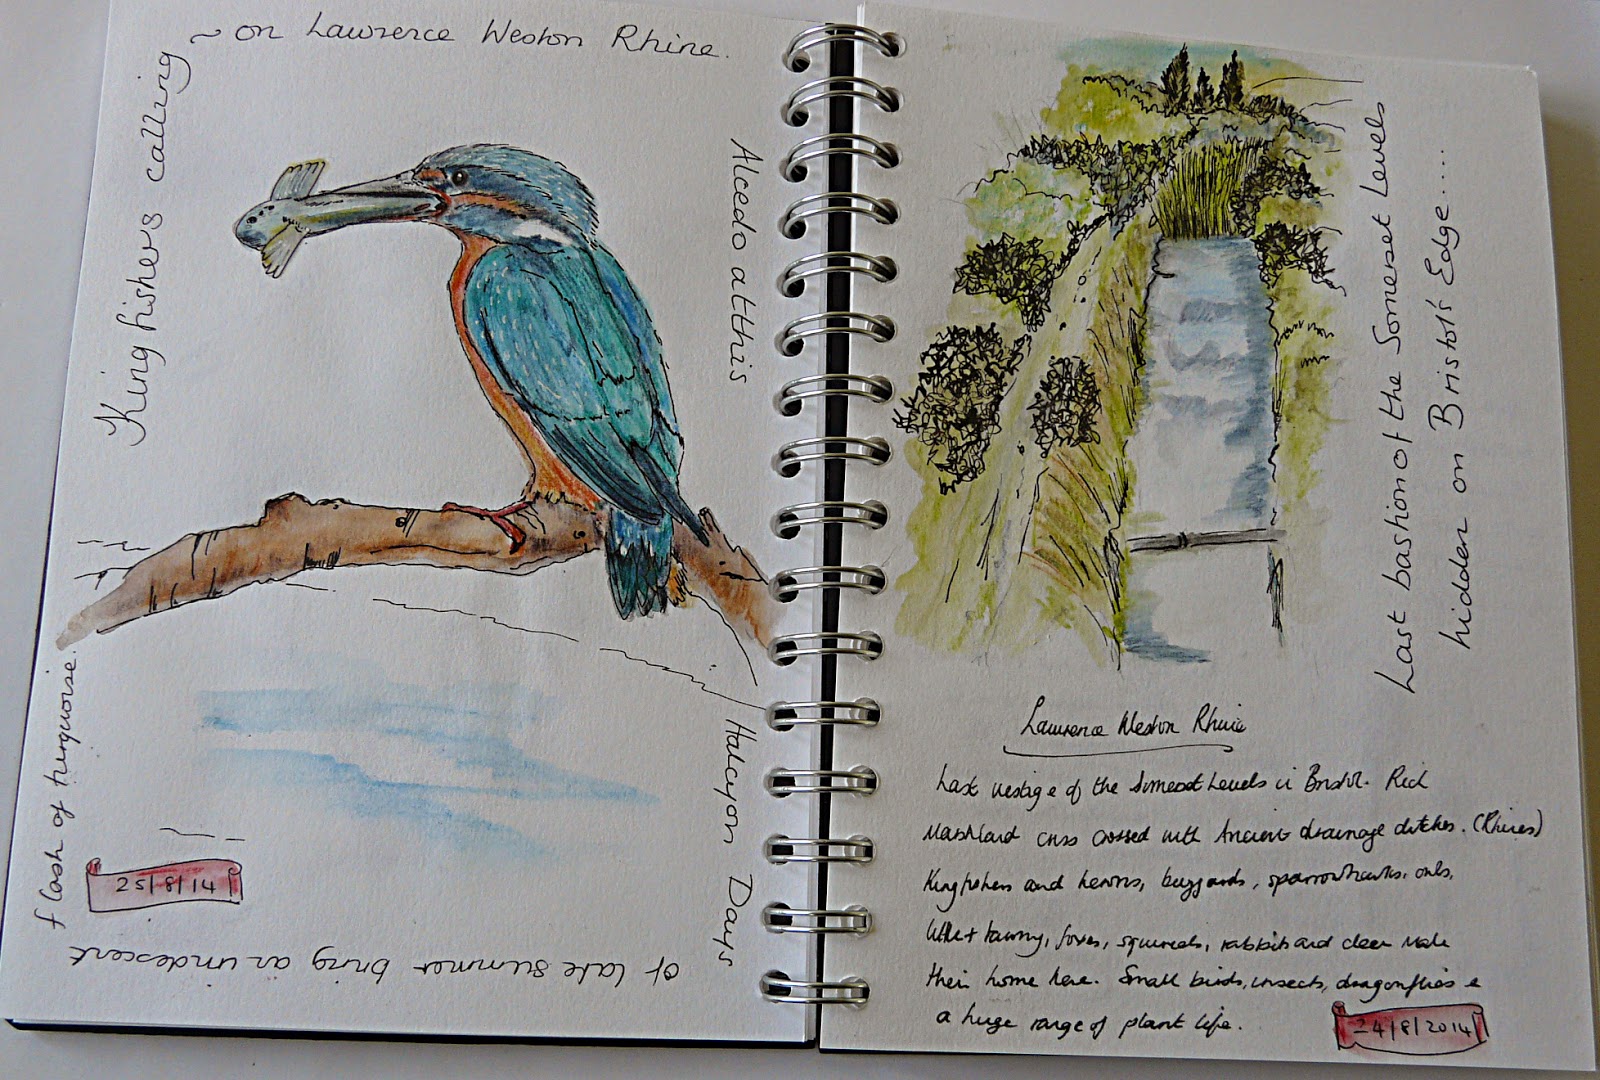 Kingfishers calling
~ on Lawrence Weston Rhine.
Alcedo atthis
Halcyon Days
of late summer bring an irridescent
flash of turquoise.
25/8/14
Last bastion of the Somerset Levels
hidden on Bristol's Edge.....
Lawrence Weston Rhine
Last vestige of the Somerset Levels in Bristol. Rich
Marshland criss crossed with Ancient drainage ditches. (Rhines)
Kingfishers and herons, buzzards, sparrowhawks, owls,
little + tawny, foxes, squirrels, rabbits and deer make
their home here. Small birds, insects, dragonflies &
a huge range of plant life.
24/8/2014